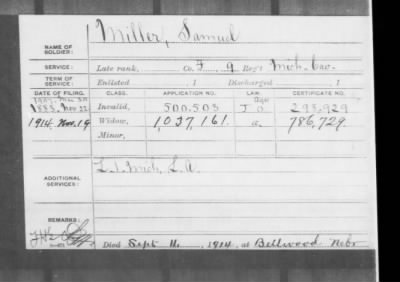 Miller, Samuel
NAME OF SOLDIER:
SERVICE: Late rank, Co. F, 9 Reg't Mich. Cav.
TERM OF SERVICE: Enlisted , 1 Discharged , 1
DATE OF FILING. CLASS. APPLICATION NO. LAW. CERTIFICATE NO.
1883, Nov. 22 Invalid, 500,503 298,929
1914, Nov. 19 Widow, 1,037,161 a. 786,729
Minor,
ADDITIONAL SERVICES: L. 1. Mich. L. A.
REMARKS:
Died Sept 11, 1914, at Bellwood Nebr